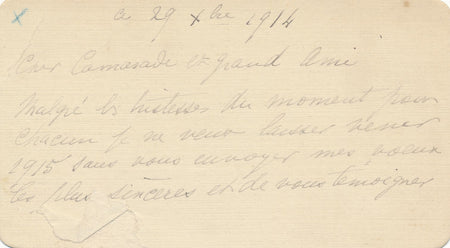 ce 29 Xbre 1914
Cher Camarade et grand Ami
Malgré les tristesses du moment pour
chacun je ne veux laisser venir
1915 sans vous envoyer mes voeux
les plus sincères et de vous témoigner